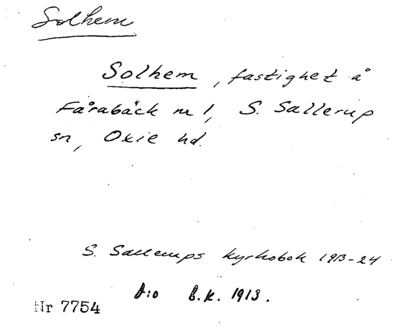 Solhem
Solhem, fastighet å
Fårabäck nr 1, S. Sallerup
sn, Oxie hd.
S. Sallerups kyrkobok 1913-24
D:o b.k. 1913.
Nr 7754